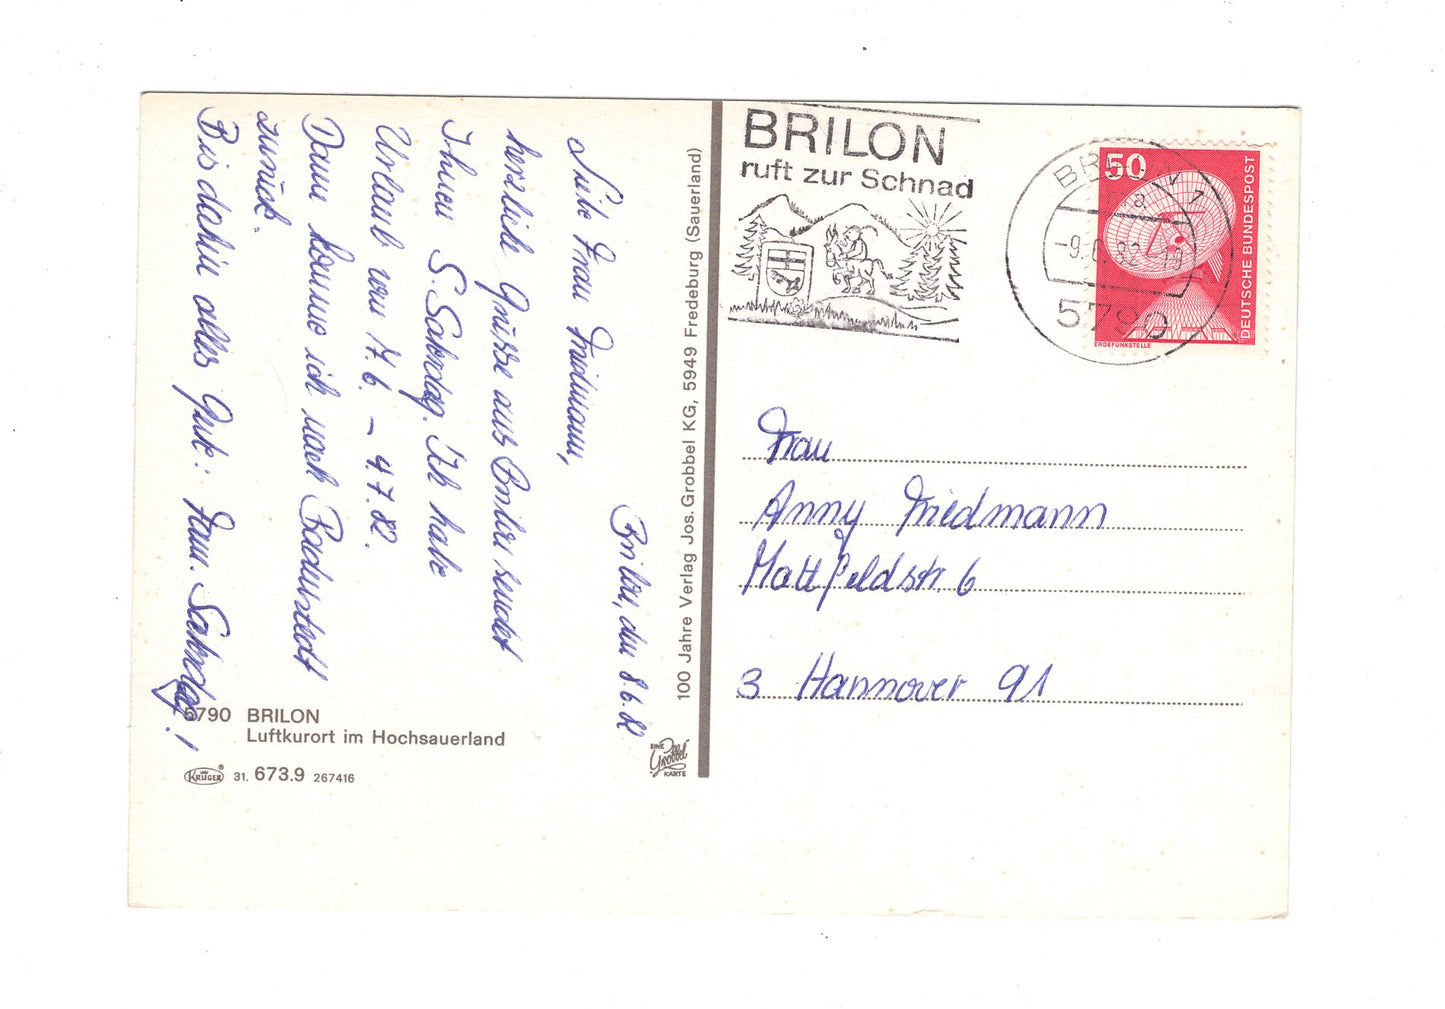 Brilon, den 8.6.82
Liebe Frau Friedmann,
herzliche Grüsse aus Brilon sendet
Ihnen S. Sabrdag. Ich habe
Urlaub vom 17.6. – 4.7.82.
Dann komme ich nach Badenstedt
zurück.
Bis dahin alles Gute: Fam. Sabrdag!
5790 BRILON
Luftkurort im Hochsauerland
KRÜGER® 31. 673.9 267416
EINE
Grobbel
KARTE
100 Jahre Verlag Jos. Grobbel KG, 5949 Fredeburg (Sauerland)
BRILON
ruft zur Schnad
BRILON 1
a
-9.6.82-19
5790
50
DEUTSCHE BUNDESPOST
ERDEFUNKSTELLE
Frau
Anny Friedmann
Mattfeldstr. 6
3 Hannover 91